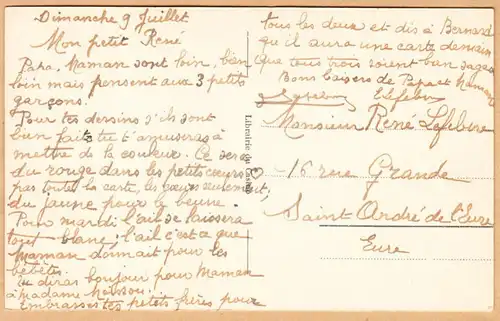 Dimanche 9 Juillet
Mon petit René
Papa, Maman sont loin, bien
loin mais pensent aux 3 petits
garçons.
Pour tes dessins s'ils sont
bien faits tu t'amuseras à
mettre de la couleur. Ce sera
du rouge dans les petits cœurs
pas toute la carte, les cœurs seulement;
du jaune pour le beurre.
Pour mardi l'ail se laissera
tout blanc; l'ail c'est ce que
Maman donnait pour les
bêbêtes.
Tu diras bonjour pour Maman
à Madame
Embrasses tes petits frères pour
tous les deux et dis à Bernard
qu'il aura une carte demain
Que tous trois soient bien sages
Bons baisers de Papa et Maman
Lefebvre
Librairie du
Monsieur René Lefebvre
16 rue Grande
Saint André de l'Eure
Eure